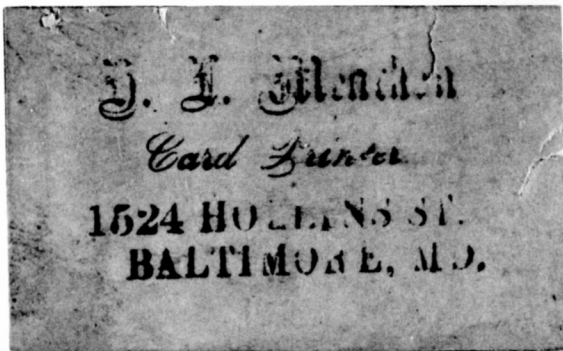 H. L. Mencken
Card Printer
1524 HOLLINS ST.
BALTIMORE, MD.